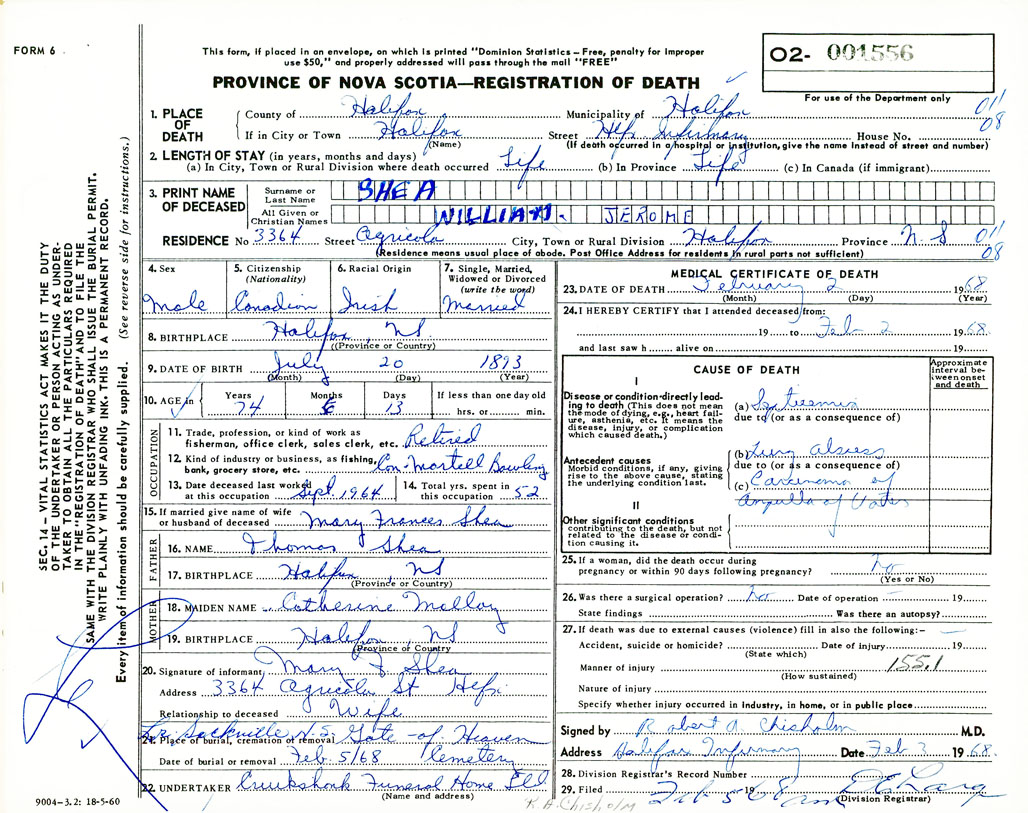 FORM 6
This form, if placed in an envelope, on which is printed "Dominion Statistics – Free, penalty for improper
use $50," and properly addressed will pass through the mail "FREE"
O2- 001556
PROVINCE OF NOVA SCOTIA—REGISTRATION OF DEATH
For use of the Department only
1. PLACE OF DEATH
County of Halifax Municipality of Halifax 011
If in City or Town Halifax Street Hfx Infirmary House No. 08
(Name) (If death occurred in a hospital or institution, give the name instead of street and number)
2. LENGTH OF STAY (in years, months and days)
(a) In City, Town or Rural Division where death occurred Life (b) In Province Life (c) In Canada (if immigrant)
3. PRINT NAME OF DECEASED
Surname or Last Name SHEA
All Given or Christian Names WILLIAM. JEROME
RESIDENCE No 3364 Street Agricola City, Town or Rural Division Halifax Province N.S 011
08
(Residence means usual place of abode. Post Office Address for residents in rural parts not sufficient)
4. Sex
Male
5. Citizenship (Nationality)
Canadian
6. Racial Origin
Irish
7. Single, Married, Widowed or Divorced (write the word)
Married
8. BIRTHPLACE Halifax, NS
(Province or Country)
9. DATE OF BIRTH July 20 1893
(Month) (Day) (Year)
10. AGE in Years 74 Months 6 Days 13 If less than one day old hrs. or min.
OCCUPATION
11. Trade, profession, or kind of work as
fisherman, office clerk, sales clerk, etc. Retired
12. Kind of industry or business, as fishing,
bank, grocery store, etc. Con-Martell Bowling
13. Date deceased last worked
at this occupation Sept. 1964
14. Total yrs. spent in
this occupation 52
15. If married give name of wife
or husband of deceased Mary Frances Shea
FATHER
16. NAME Thomas Shea
17. BIRTHPLACE Halifax, NS
(Province or Country)
MOTHER
18. MAIDEN NAME Catherine Malloy
19. BIRTHPLACE Halifax, NS
(Province or Country)
20. Signature of informant Mary F Shea
Address 3364 Agricola St Hfx
Relationship to deceased Wife
Lr. Sackville, N.S. Gate-of Heaven
21. Place of burial, cremation or removal
Date of burial or removal Feb. 5/68 Cemetery
22. UNDERTAKER Cruikshank Funeral Home Ltd
(Name and address)
9004-3.2: 18-5-60
MEDICAL CERTIFICATE OF DEATH
23. DATE OF DEATH February 2 1968
(Month) (Day) (Year)
24. I HEREBY CERTIFY that I attended deceased from:
19 to Feb 2 1968
and last saw h alive on 19
CAUSE OF DEATH
Approximate interval between onset and death
I
Disease or condition directly leading to death (This does not mean the mode of dying, e.g., heart failure, asthenia, etc. It means the disease, injury, or complication which caused death.)
(a) Septicemia
due to (or as a consequence of)
Antecedent causes
Morbid conditions, if any, giving rise to the above cause, stating the underlying condition last.
(b) Lung abscess
due to (or as a consequence of)
(c) Carcinoma of
Ampulla of Vater
II
Other significant conditions
contributing to the death, but not related to the disease or condition causing it.
25. If a woman, did the death occur during
pregnancy or within 90 days following pregnancy? No
(Yes or No)
26. Was there a surgical operation? No Date of operation – 19
State findings Was there an autopsy?
27. If death was due to external causes (violence) fill in also the following:–
Accident, suicide or homicide? Date of injury 19
(State which)
Manner of injury 155.1
(How sustained)
Nature of injury
Specify whether injury occurred in industry, in home, or in public place
Signed by Robert A Chisholm M.D.
Address Halifax Infirmary Date Feb 3 1968.
28. Division Registrar's Record Number
29. Filed Feb 5 1968
(Division Registrar)
R.A. CHISHOLM
SEC. 14 – VITAL STATISTICS ACT MAKES IT THE DUTY
OF THE UNDERTAKER OR PERSON ACTING AS UNDER-
TAKER TO OBTAIN ALL THE PARTICULARS REQUIRED
IN THE "REGISTRATION OF DEATH" AND TO FILE THE
SAME WITH THE DIVISION REGISTRAR WHO SHALL ISSUE THE BURIAL PERMIT.
WRITE PLAINLY WITH UNFADING INK. THIS IS A PERMANENT RECORD.
Every item of information should be carefully supplied. (See reverse side for instructions.)